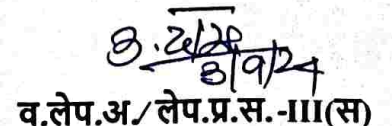 3/9/24
व.लेप.अ./ लेप.प्र.स.-III(स)